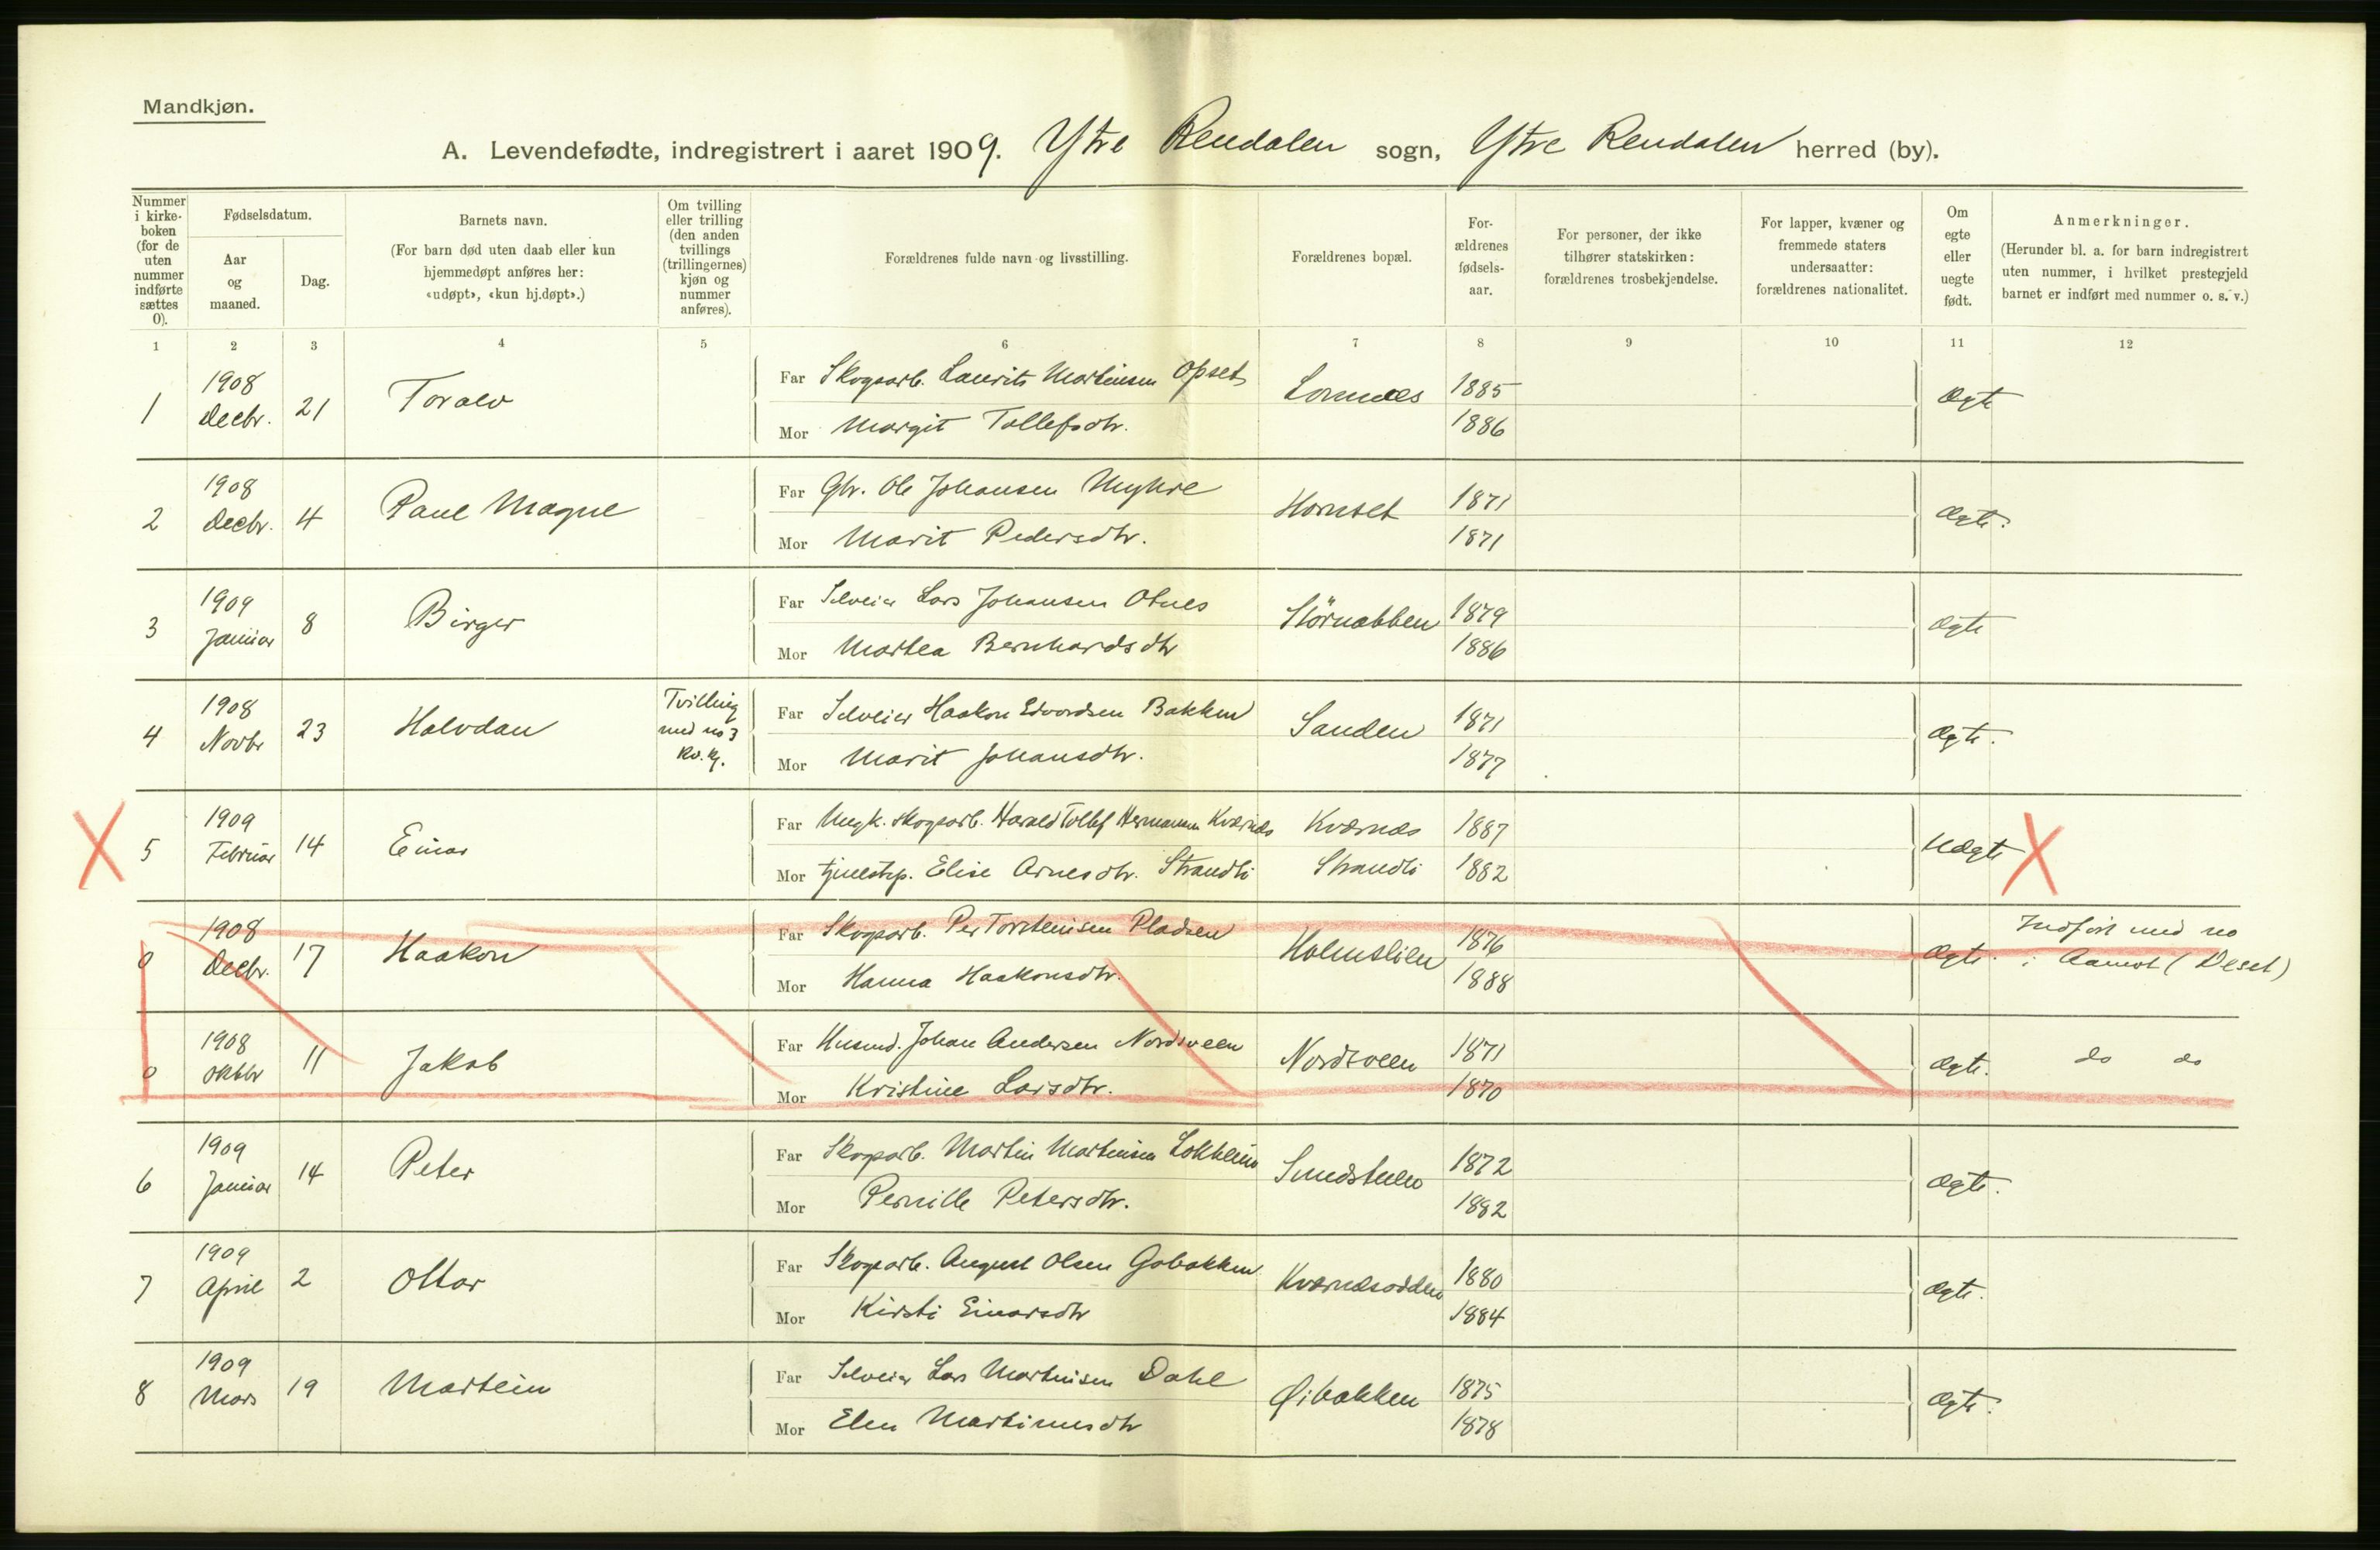 Mandkjøn.
A. Levendefødte, indregistrert i aaret 1909. Ytre Rendalen sogn, Ytre Rendalen herred (by).
Nummer i kirke-boken (for de uten nummer indførte sættes 0).
Fødselsdatum.
Aar og maaned.
Dag.
Barnets navn.
(For barn død uten daab eller kun hjemmedøpt anføres her: «udøpt», «kun hj.døpt».)
Om tvilling eller trilling (den anden tvillings (trillingernes) kjøn og nummer anføres).
Forældrenes fulde navn og livsstilling.
Forældrenes bopæl.
For-ældrenes fødsels-aar.
For personer, der ikke tilhører statskirken: forældrenes trosbekjendelse.
For lapper, kvæner og fremmede staters undersaatter: forældrenes nationalitet.
Om egte eller uegte født.
Anmerkninger.
(Herunder bl. a. for barn indregistrert uten nummer, i hvilket prestegjeld barnet er indført med nummer o. s. v.)
1 2 3 4 5 6 7 8 9 10 11 12
1 1908 Decbr. 21 Toralv
Far Skogsarb. Laurits Martinsen Opset Lomnes 1885 Ægte
Mor Margit Tollefsdtr. 1886
2 1908 Decbr. 4 Paul Magne
Far Gbr. Ole Johansen Myhre Hornset 1871 Ægte.
Mor Marit Pedersdtr. 1871
3 1909 Januar 8 Birger
Far Selveier Lars Johansen Otnes Störnabben 1879 Ægte
Mor Martea Bernhardsdtr 1886
4 1908 Novbr 23 Halvdan Tvilling med no 3 Kv. kj.
Far Selveier Haakon Edvardsen Bakken Sanden 1871 Ægte.
Mor Marit Johansdtr. 1877
X 5 1909 Februar 14 Einar
Far Ungk. skogsarb. Harald Tollef Hermansen Kværnæs Kværnæs 1887 Uægte X
Mor tjenestep. Elise Arnesdtr. Strandli Strandli 1882
0 1908 Decbr. 17 Haakon
Far Skogsarb. Per Torsteinsen Pladsen Holmslien 1876 Ægte. Indført med no
Mor Hanna Haakonsdtr. 1888 i Aamot (Deset)
0 1908 Oktbr 11 Jakob
Far Husmd. Johan Andersen Nordsveen Nordsveen 1871 Ægte. do do
Mor Kristine Larsdtr. 1870
6 1909 Januar 14 Peter
Far Skogsarb. Martin Martinsen Sundstuen 1872 Ægte.
Mor Pernille Petersdtr. 1882
7 1909 April 2 Ottar
Far Skogsarb. August Olsen Kværnæsodden 1880 Ægte.
Mor Kirsti Einarsdtr 1884
8 1909 Mars 19 Martein
Far Selveier Lars Martinisen Dahl Øibakken 1875 Ægte.
Mor Elen Martinusdtr 1878